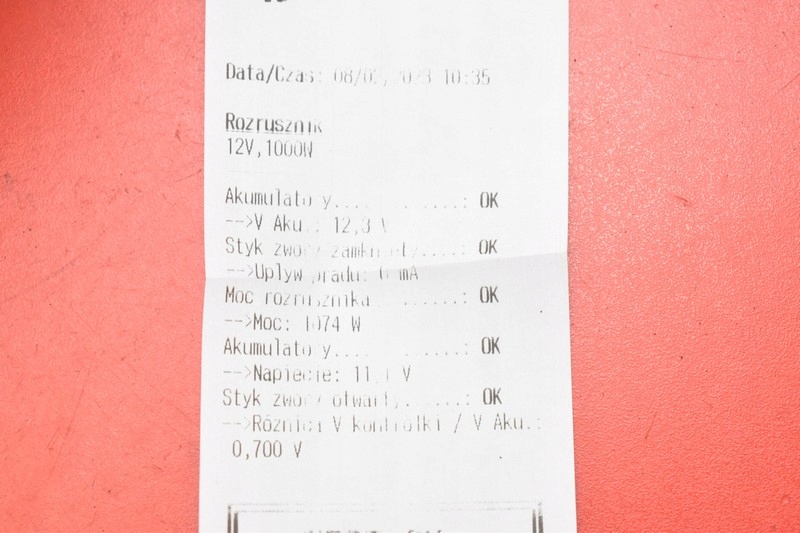 Data/Czas: 10:35
Rozrusznik
12V,1000W
Akumulatory..........: OK
-->V Aku.: 12,3 V
Styk zwory zamknięty.....: OK
-->Upływ prądu: mA
Moc rozrusznika.......: OK
-->Moc: 1074 W
Akumulatory..........: OK
-->Napięcie: V
Styk zwory otwarty.......: OK
-->Różnica V kontrolki / V Aku.:
0,700 V